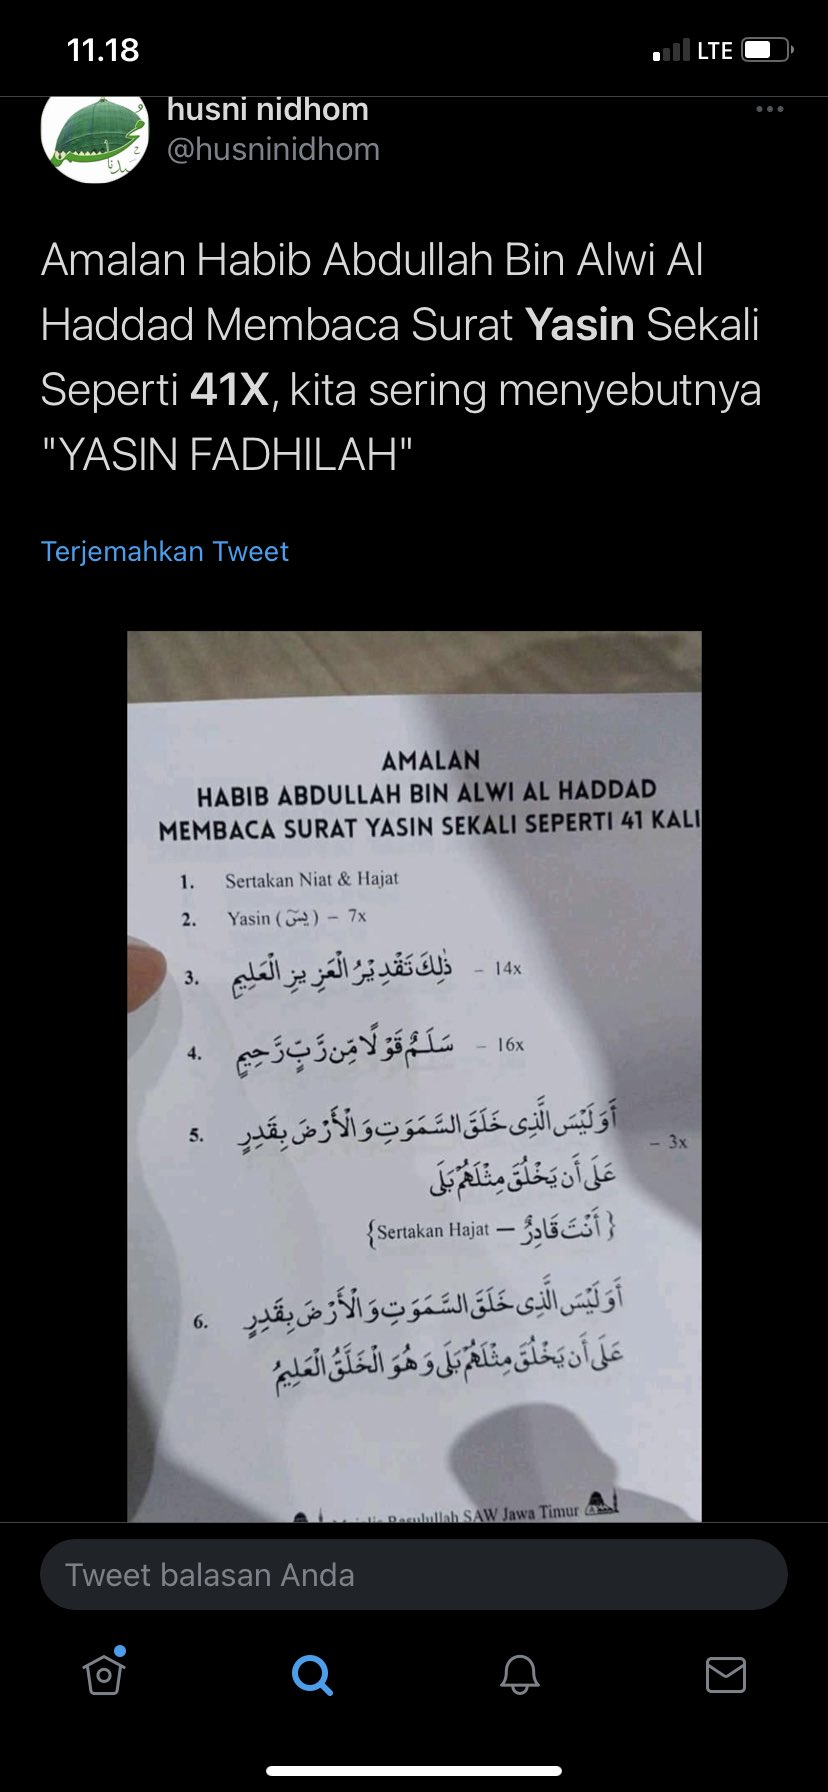 11.18
LTE
husni nidhom
@husninidhom
Amalan Habib Abdullah Bin Alwi Al
Haddad Membaca Surat Yasin Sekali
Seperti 41X, kita sering menyebutnya
"YASIN FADHILAH"
Terjemahkan Tweet
AMALAN
HABIB ABDULLAH BIN ALWI AL HADDAD
MEMBACA SURAT YASIN SEKALI SEPERTI 41 KALI
1. Sertakan Niat & Hajat
2. Yasin (يسٓ) – 7x
3. ذٰلِكَ تَقْدِيْرُ الْعَزِيزِ الْعَلِيمِ – 14x
4. سَلَمٌ قَوْلًا مِّن رَّبٍّ رَّحِيمٍ – 16x
5. أَوَلَيْسَ الَّذِى خَلَقَ السَّمَوَتِ وَالْأَرْضَ بِقَدِرٍ
عَلَى أَن يَخْلُقَ مِثْلَهُمْ بَلَى – 3x
{أَنْتَ قَادِرٌ – Sertakan Hajat}
6. أَوَلَيْسَ الَّذِى خَلَقَ السَّمَوَتِ وَالْأَرْضَ بِقَدِرٍ
عَلَى أَن يَخْلُقَ مِثْلَهُمْ بَلَى وَهُوَ الْخَلَّقُ الْعَلِيمُ
Rasulullah SAW Jawa Timur
Tweet balasan Anda